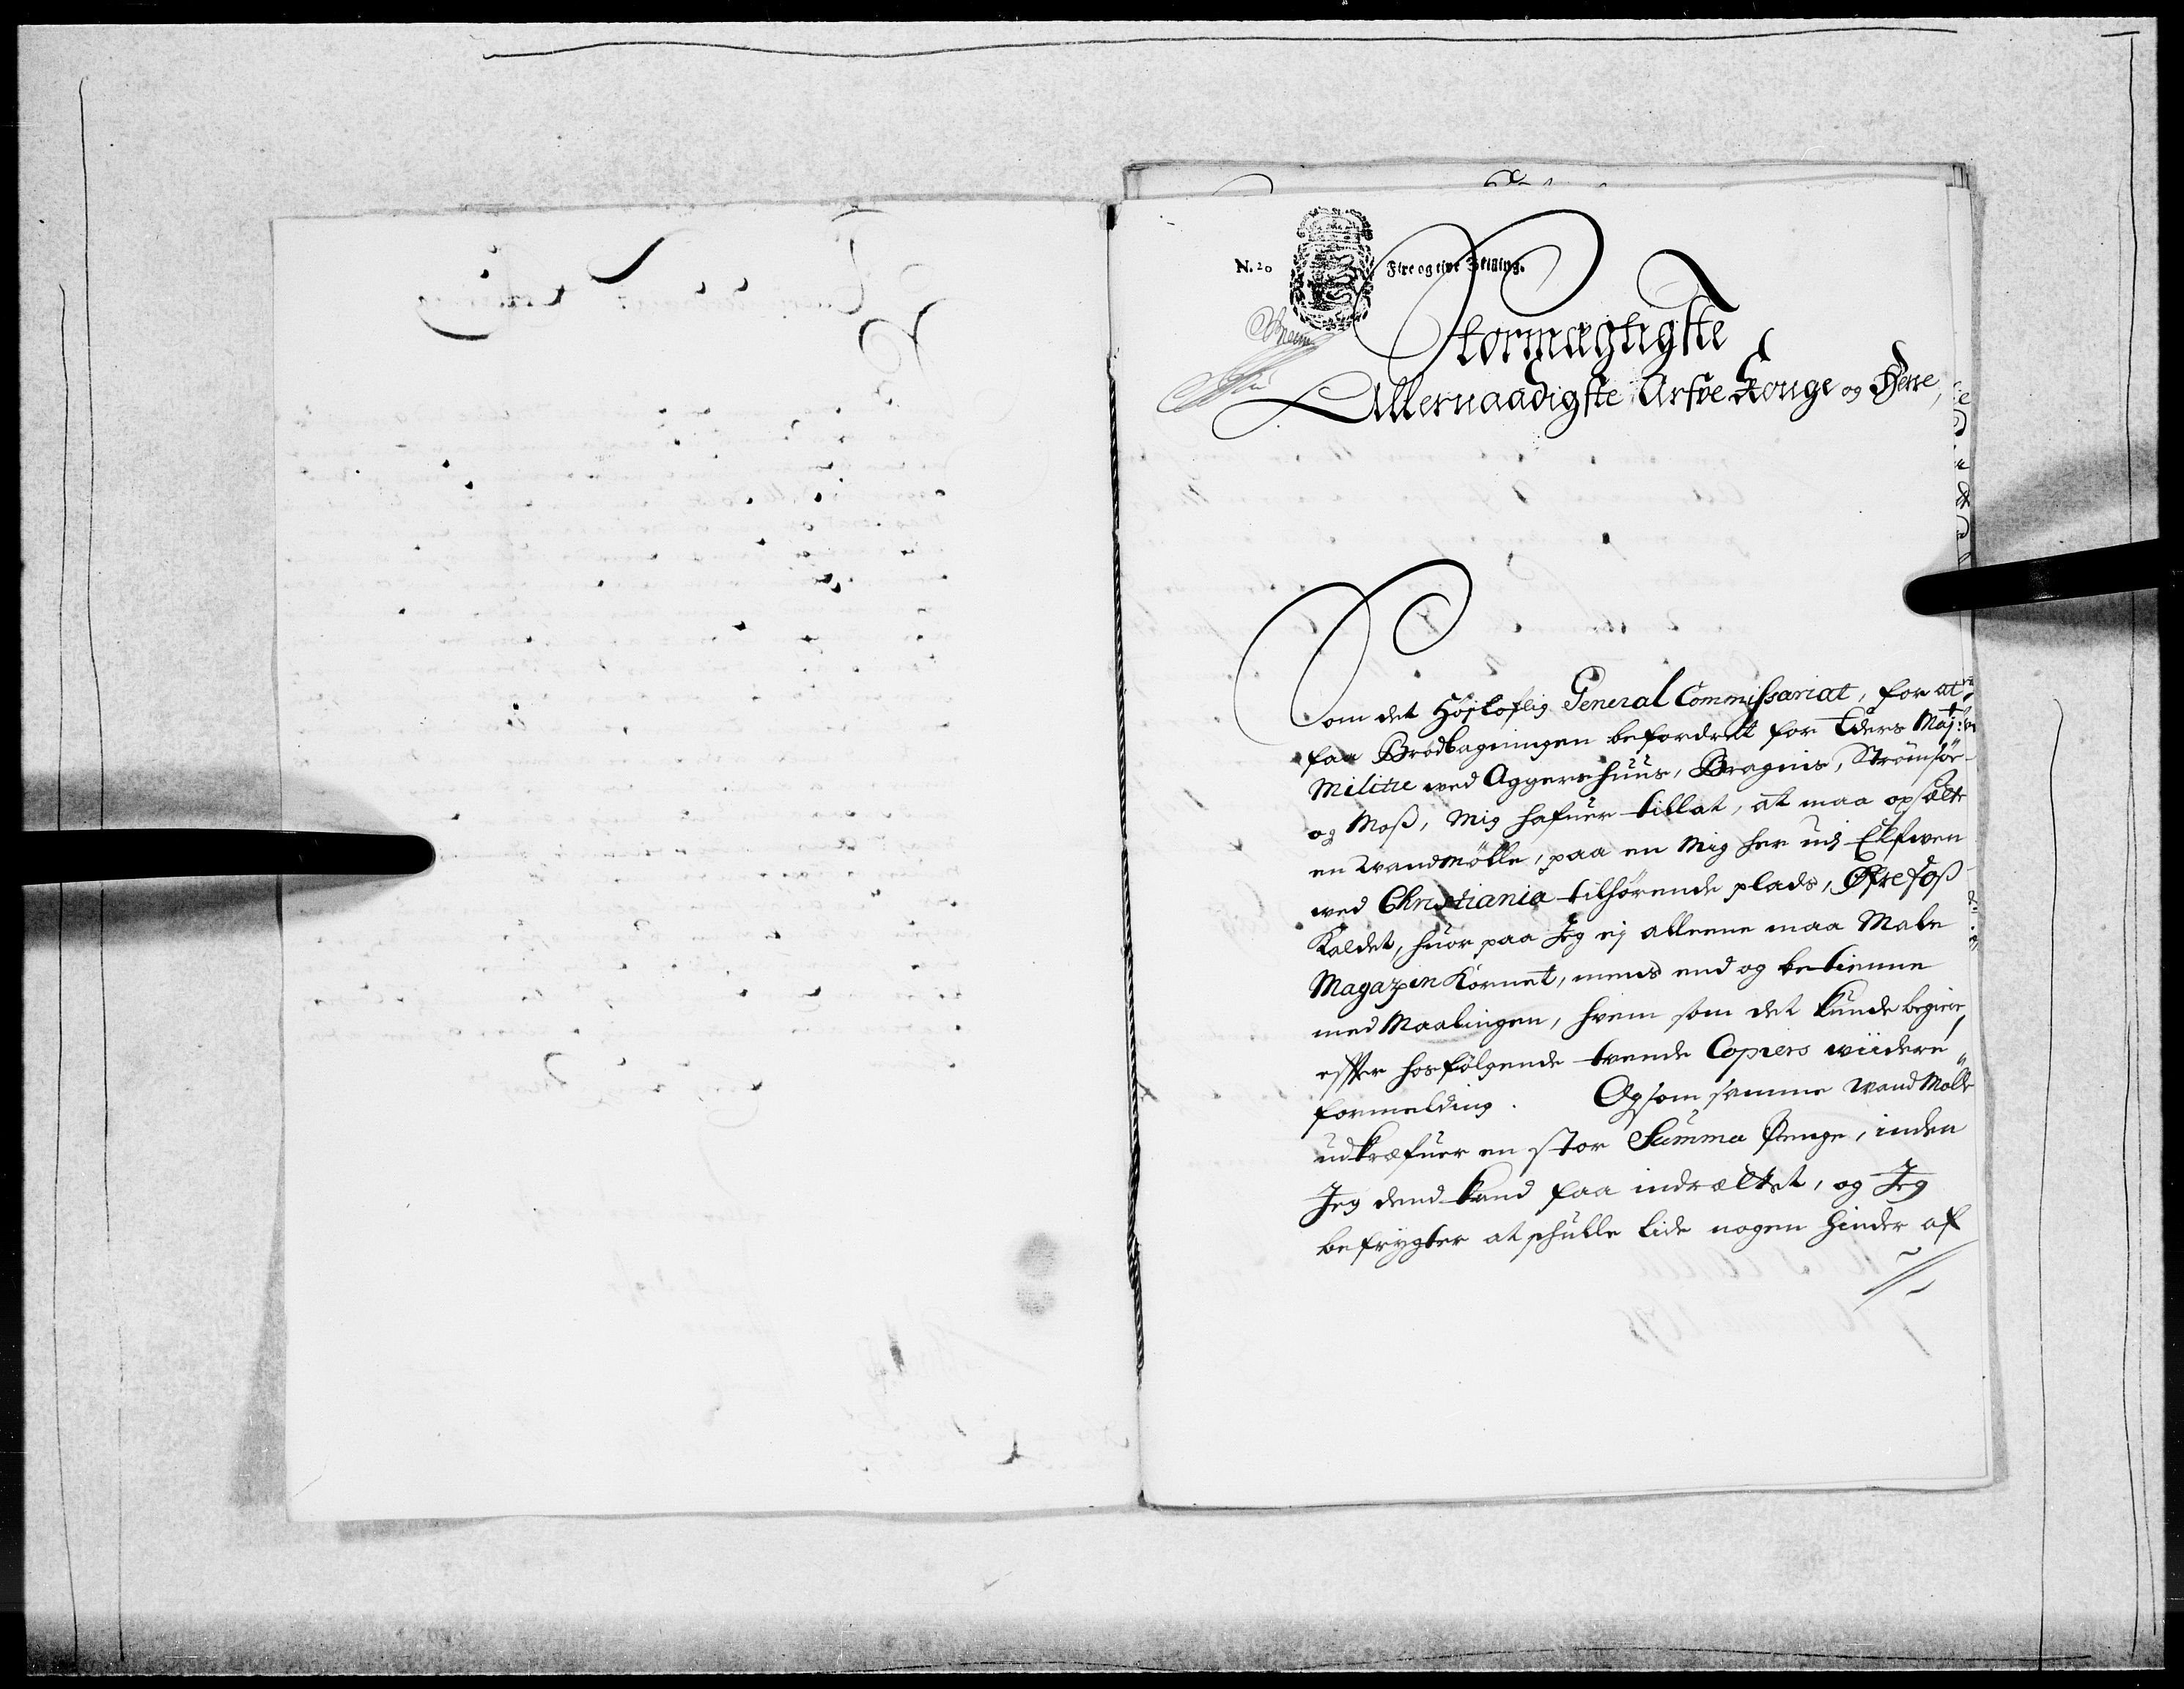 N. 20 Fire og tive Skilling.
Stormægtigste
Allernaadigste Arfve Konge og Herre,
Som det Høj Loflig General Commissariat, for at
faa Brødbagningen befordret for Eders Maj:ts
Militie ved Aggershuus, Bragnis, Strømsøe
og Moss, Mig hafuer tillat, at maa opsætte
en Wandmølle, paa en Mig her udj Elfwen
wed Christiania tilhørende plads, Øfre foss
Kaldet, huor paa Jeg ej alleene maa Male
Magazin Kornet, mens end og betienne
med Maalingen, hvem som det kunde begiere,
effter hosfølgende tvende Copiers wiidere
formelding. Og som samme Wand Mølle
udkræfuer en stor Summa Penge, inden
Jeg dend kand faa indrættet, og Jeg
befrygter at schulle lide nogen Hinder af